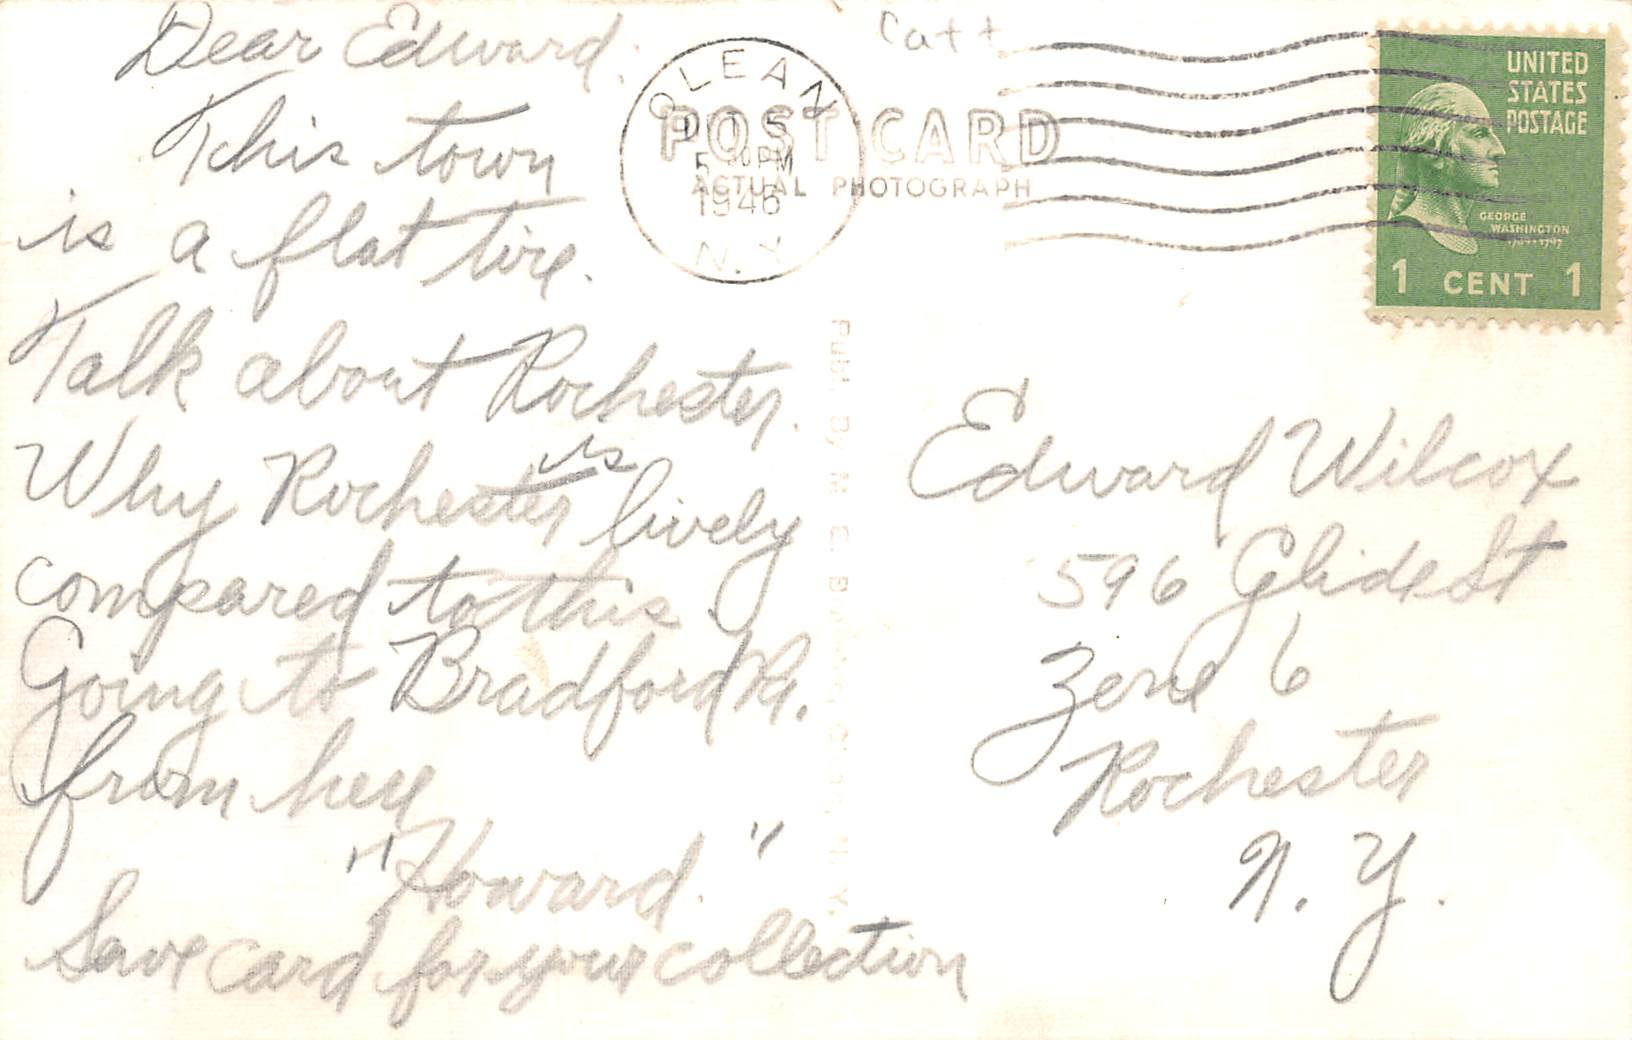 Dear Edward:
This town
is a flat tire.
Talk about Rochester.
Why Rochester is lively
compared to this.
Going to Bradford Pa.
from here
"Howard."
Save card for your collection
Catt
OLEAN
15
PM
1946
N.Y.
POST CARD
ACTUAL PHOTOGRAPH
UNITED
STATES
POSTAGE
GEORGE
WASHINGTON
1 CENT 1
Edward Wilcox
596 Glide St
Zone 6
Rochester
N. Y.